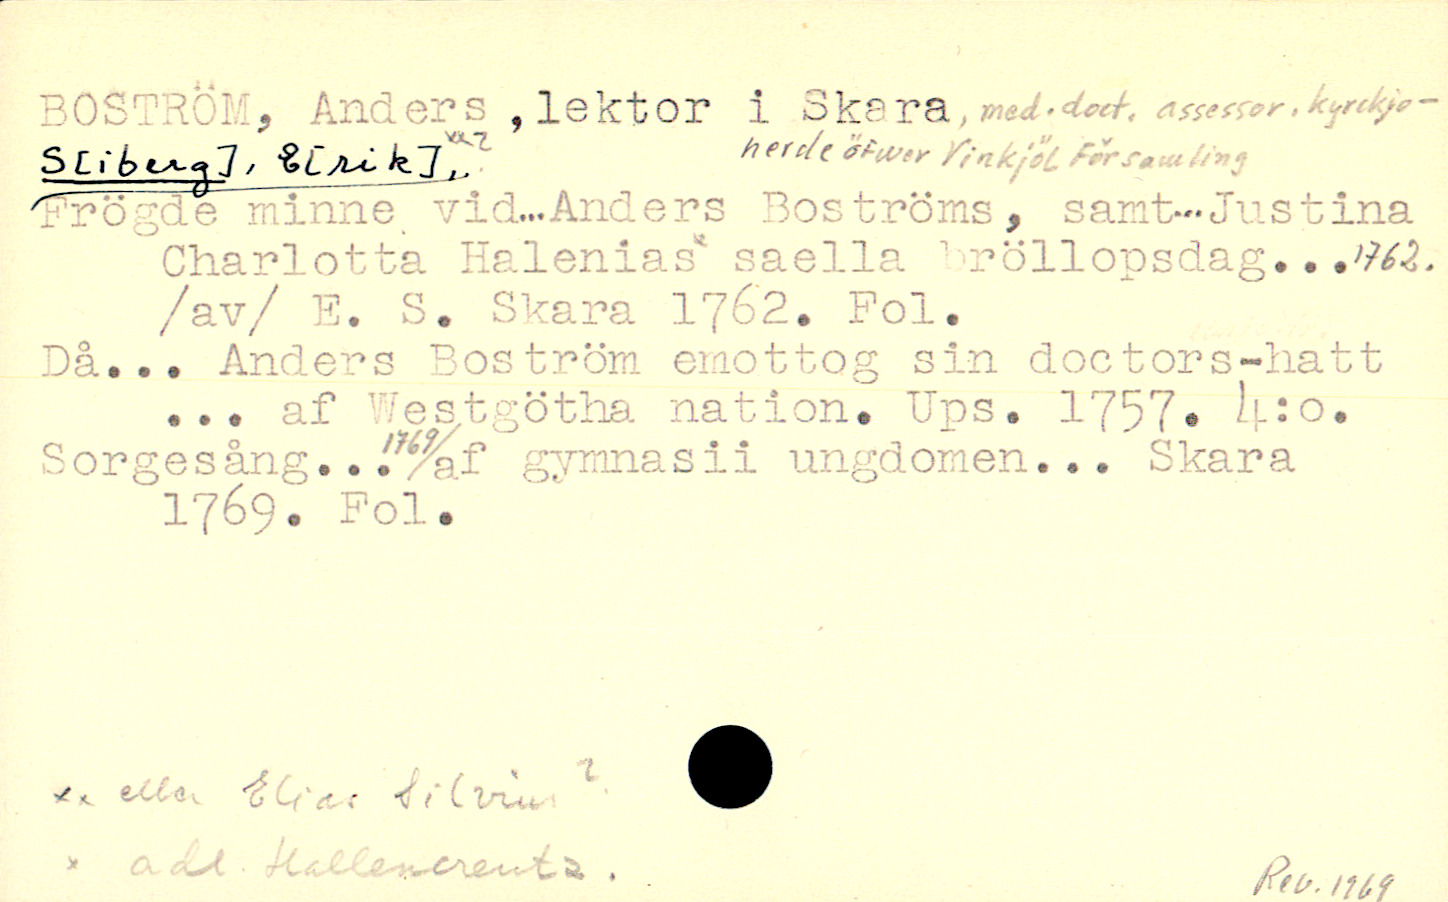 BOSTRÖM, Anders ,lektor i Skara, med. doct. assessor. kyrckjo-
herde öfwer Vinkjöl Församling
S[iberg], E[rik],, xx ?
Frögde minne vid...Anders Boströms, samt...Justina
Charlotta Halenias x saella bröllopsdag...1762.
/av/ E. S. Skara 1762. Fol.
Då... Anders Boström emottog sin doctors-hatt
... af Westgötha nation. Ups. 1757. 4:o.
Sorgesång...1769/af gymnasii ungdomen... Skara
1769. Fol.
xx eller Elias Silvius ?
x adl. Hallencreutz.
Rev. 1969